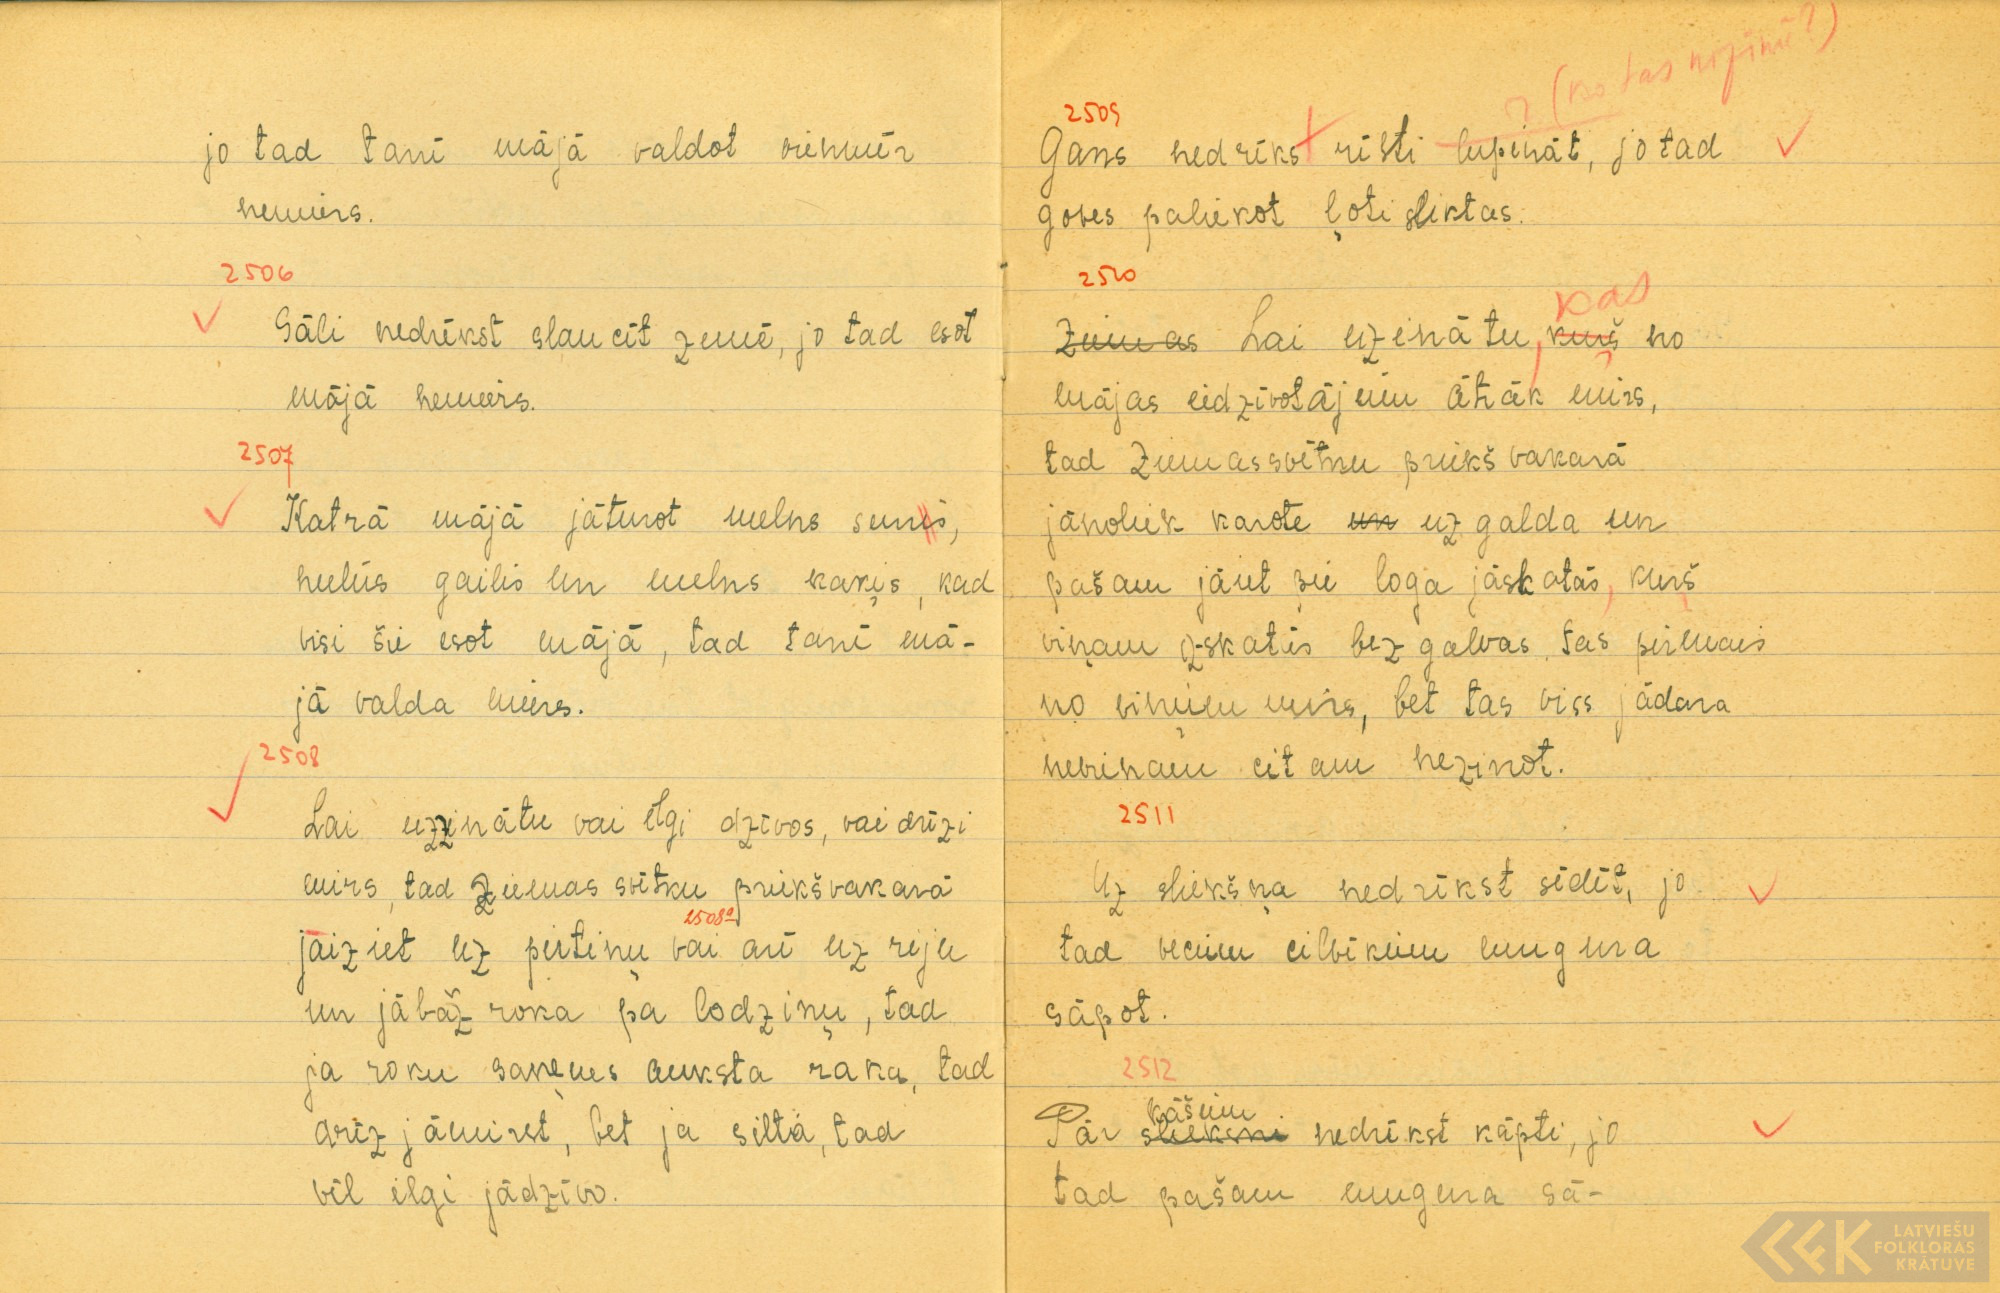 jo tad tanī mājā valdot vienmēr
nemiers.
2506
Sāli nedrīkst slaucīt zemē, jo tad esot
mājā nemiers.
2507
Katrā mājā jāturot melns suns,
melns gailis un melns kaķis, kad
visi šie esot mājā, tad tanī mā-
jā valda miers.
2508
Lai uzzinātu vai ilgi dzīvos, vai drīzi
mirs, tad Ziemas svētku priekšvakarā
jāiziet uz pirtiņu vai arī uz riju
2508a
un jābāž roka pa lodziņu, tad
ja roku saņems auksta roka, tad
drīz jāmirst, bet ja silta, tad
vēl ilgi jādzīvo.
? (ko tas nozīmē?)
2509
Gans nedrīkst rīksti lupināt, jo tad
govis paliekot ļoti sliktas.
2510
kas
Ziemas Lai uzinātu, kurš no
mājas iedzīvotājiem ātrāk mirs,
tad Ziemassvētku priekšvakarā
jānoliek karote un uz galda un
pašam jāiet pie loga jāskatās, kurš
viņam izskatās bez galvas, tas pirmais
no viņiem mirs, bet tas viss jādara
nevienam citam nezinot.
2511
Uz sliekšņa nedrīkst sēdēt, jo
tad veciem cilvēkiem mugura
sāpot.
2512
kāšiem
Pār slieksni nedrīkst kāpti, jo
tad pašam mugura sā-
LATVIEŠU
FOLKLORAS
KRĀTUVE